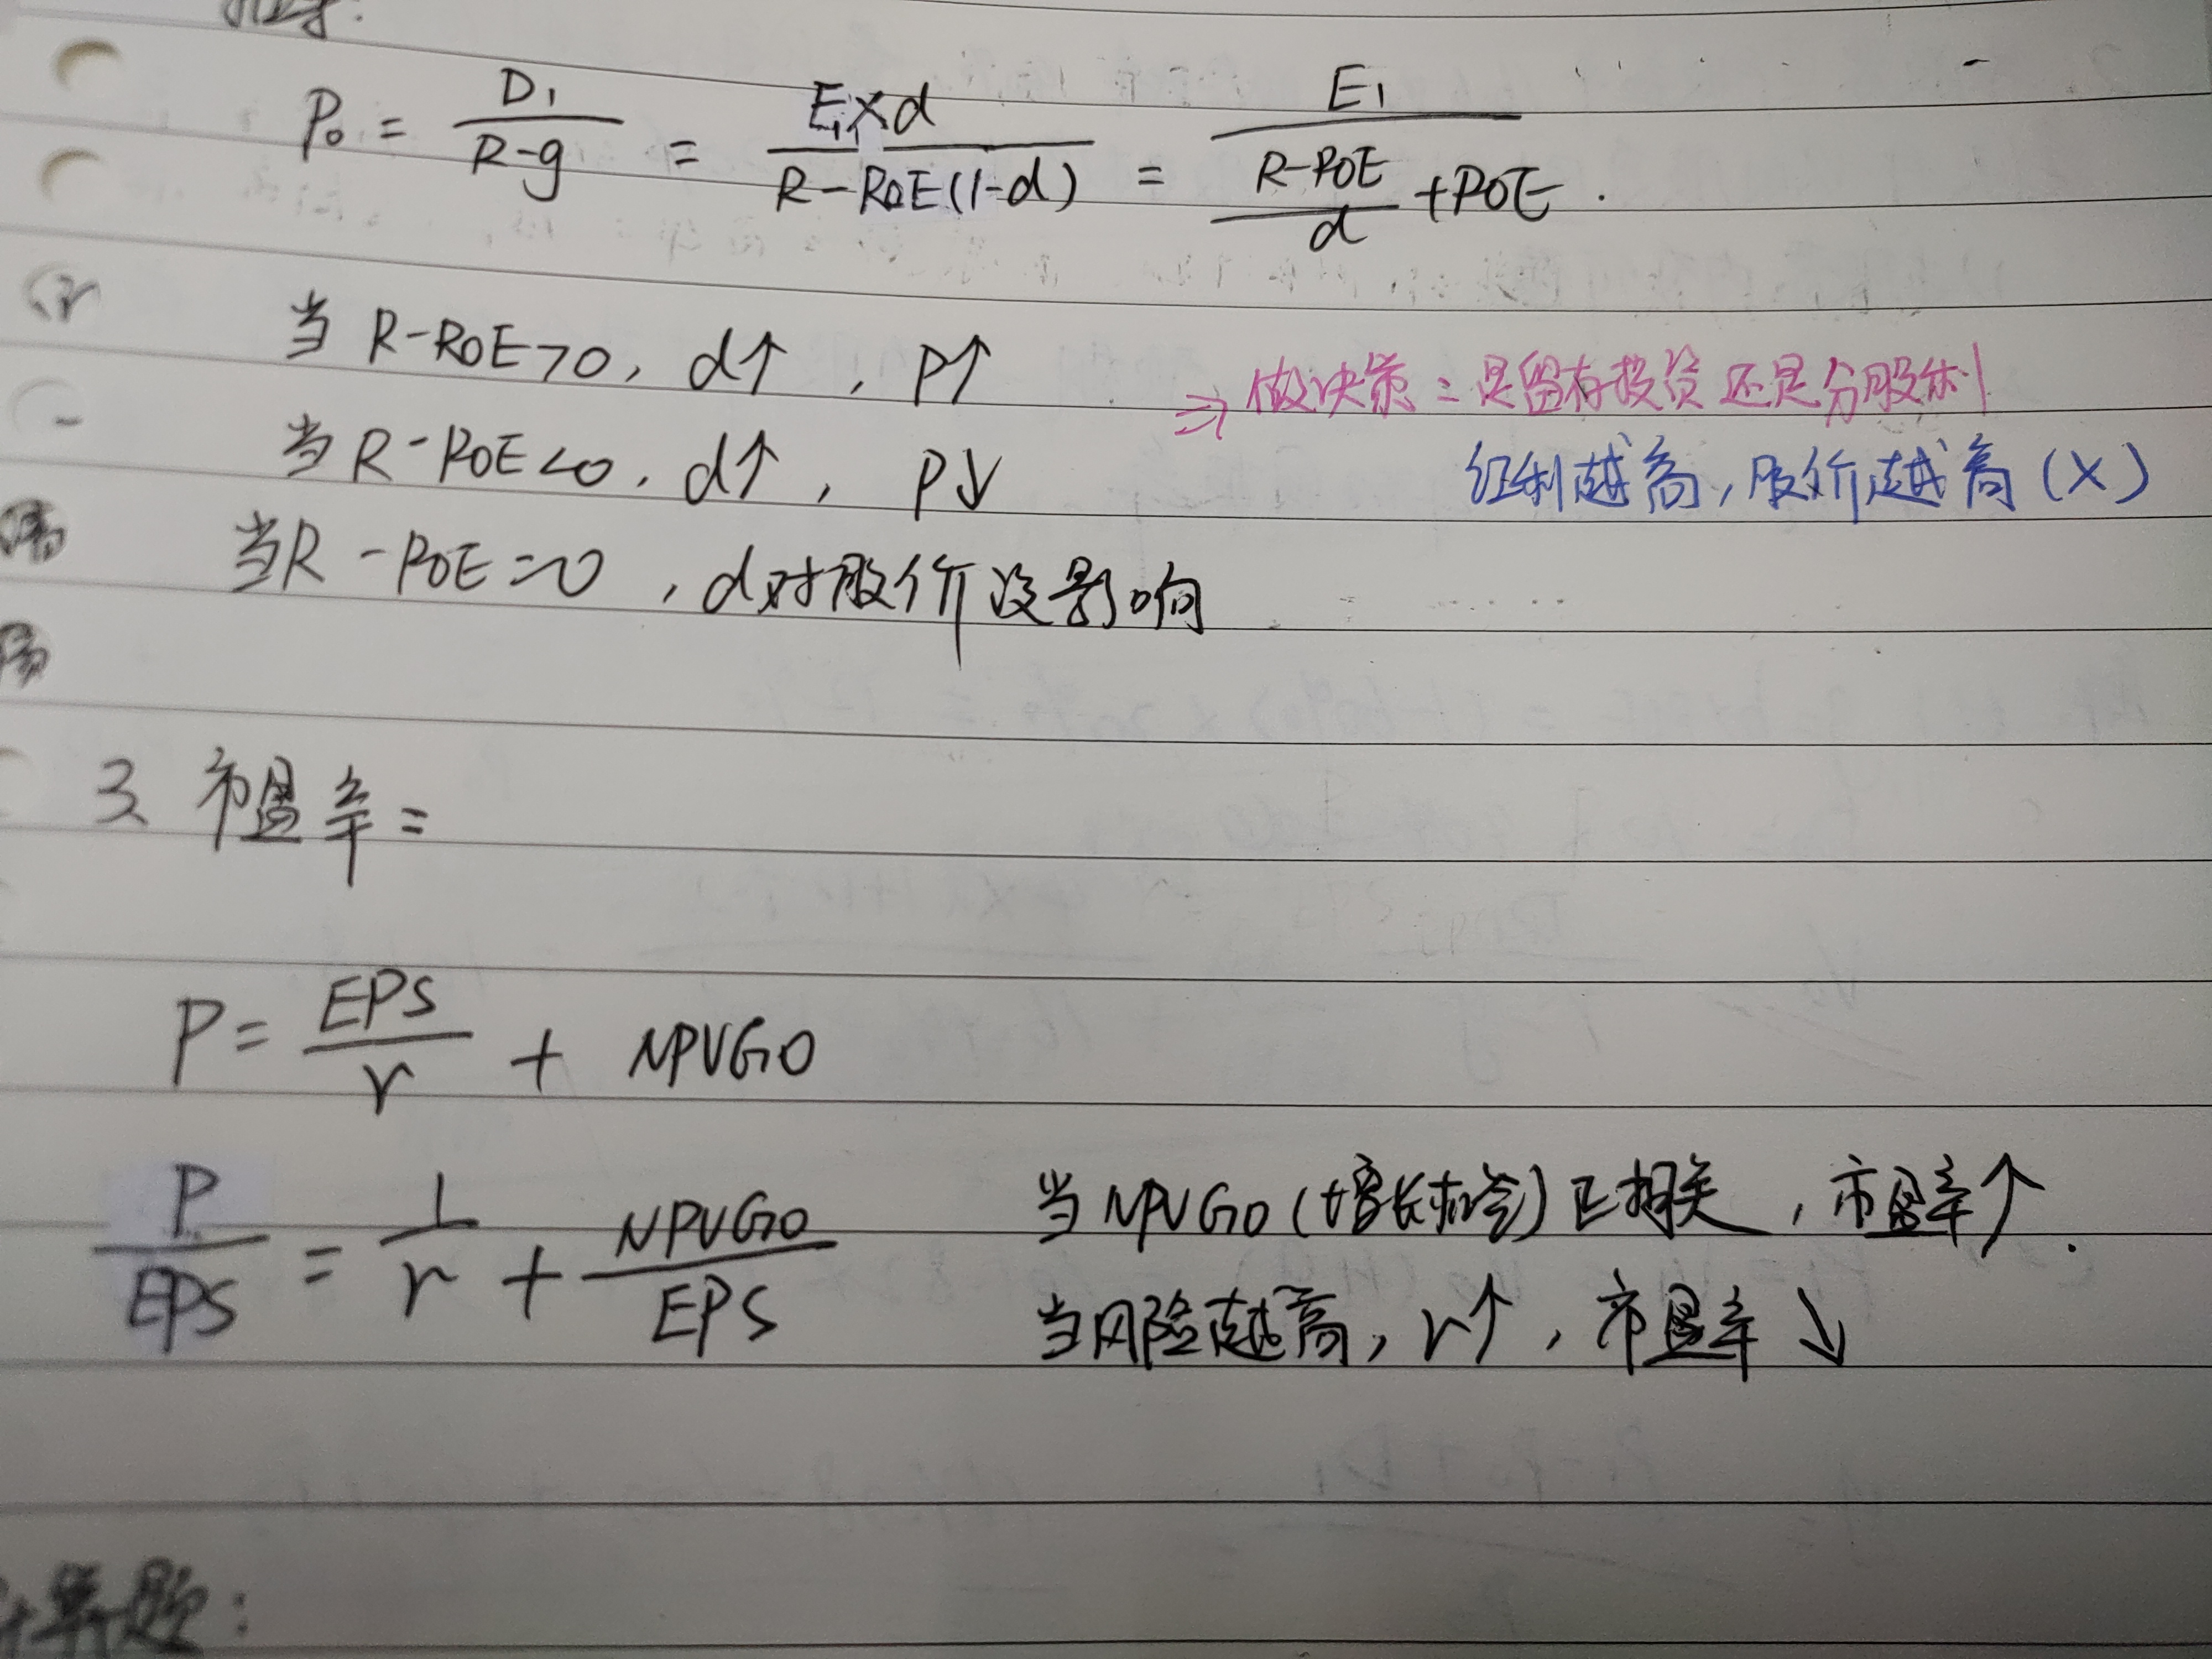 P₀ = D₁/(R-g) = E₁×d/(R-ROE(1-d)) = E₁/((R-ROE)/d + ROE) .
当 R-ROE>0, d↑, P↑
⇒ 做决策:是留存投资还是分股利
当 R-ROE<0, d↑, P↓
红利越高,股价越高(×)
当R-ROE=0, d对股价没影响
3、市盈率=
P = EPS/r + NPVGO
P/EPS = 1/r + NPVGO/EPS
当NPVGO(增长机会)正相关,市盈率↑.
当风险越高, r↑, 市盈率↓
计算题: